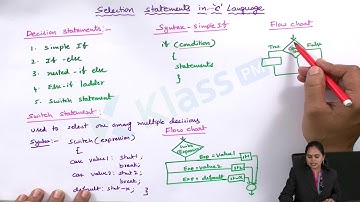 Selection statements in 'c' Language
Decision statements:-
1. Simple If
2. If -else
3. nested - if else
4. Else-if ladder
5. Switch statement
Syntax - Simple If
if (condition)
{
statements
}
Flow chart
True
False
Switch Statement:
used to select one among multiple decisions
Syntax:- switch (expression)
{
case value1: stmt1;
break;
case value2: stmt2;
break;
default: stmt-x;
}
Flow chart
Switch
Exp = Value1
Exp = Value2
Exp = default
Klass PM